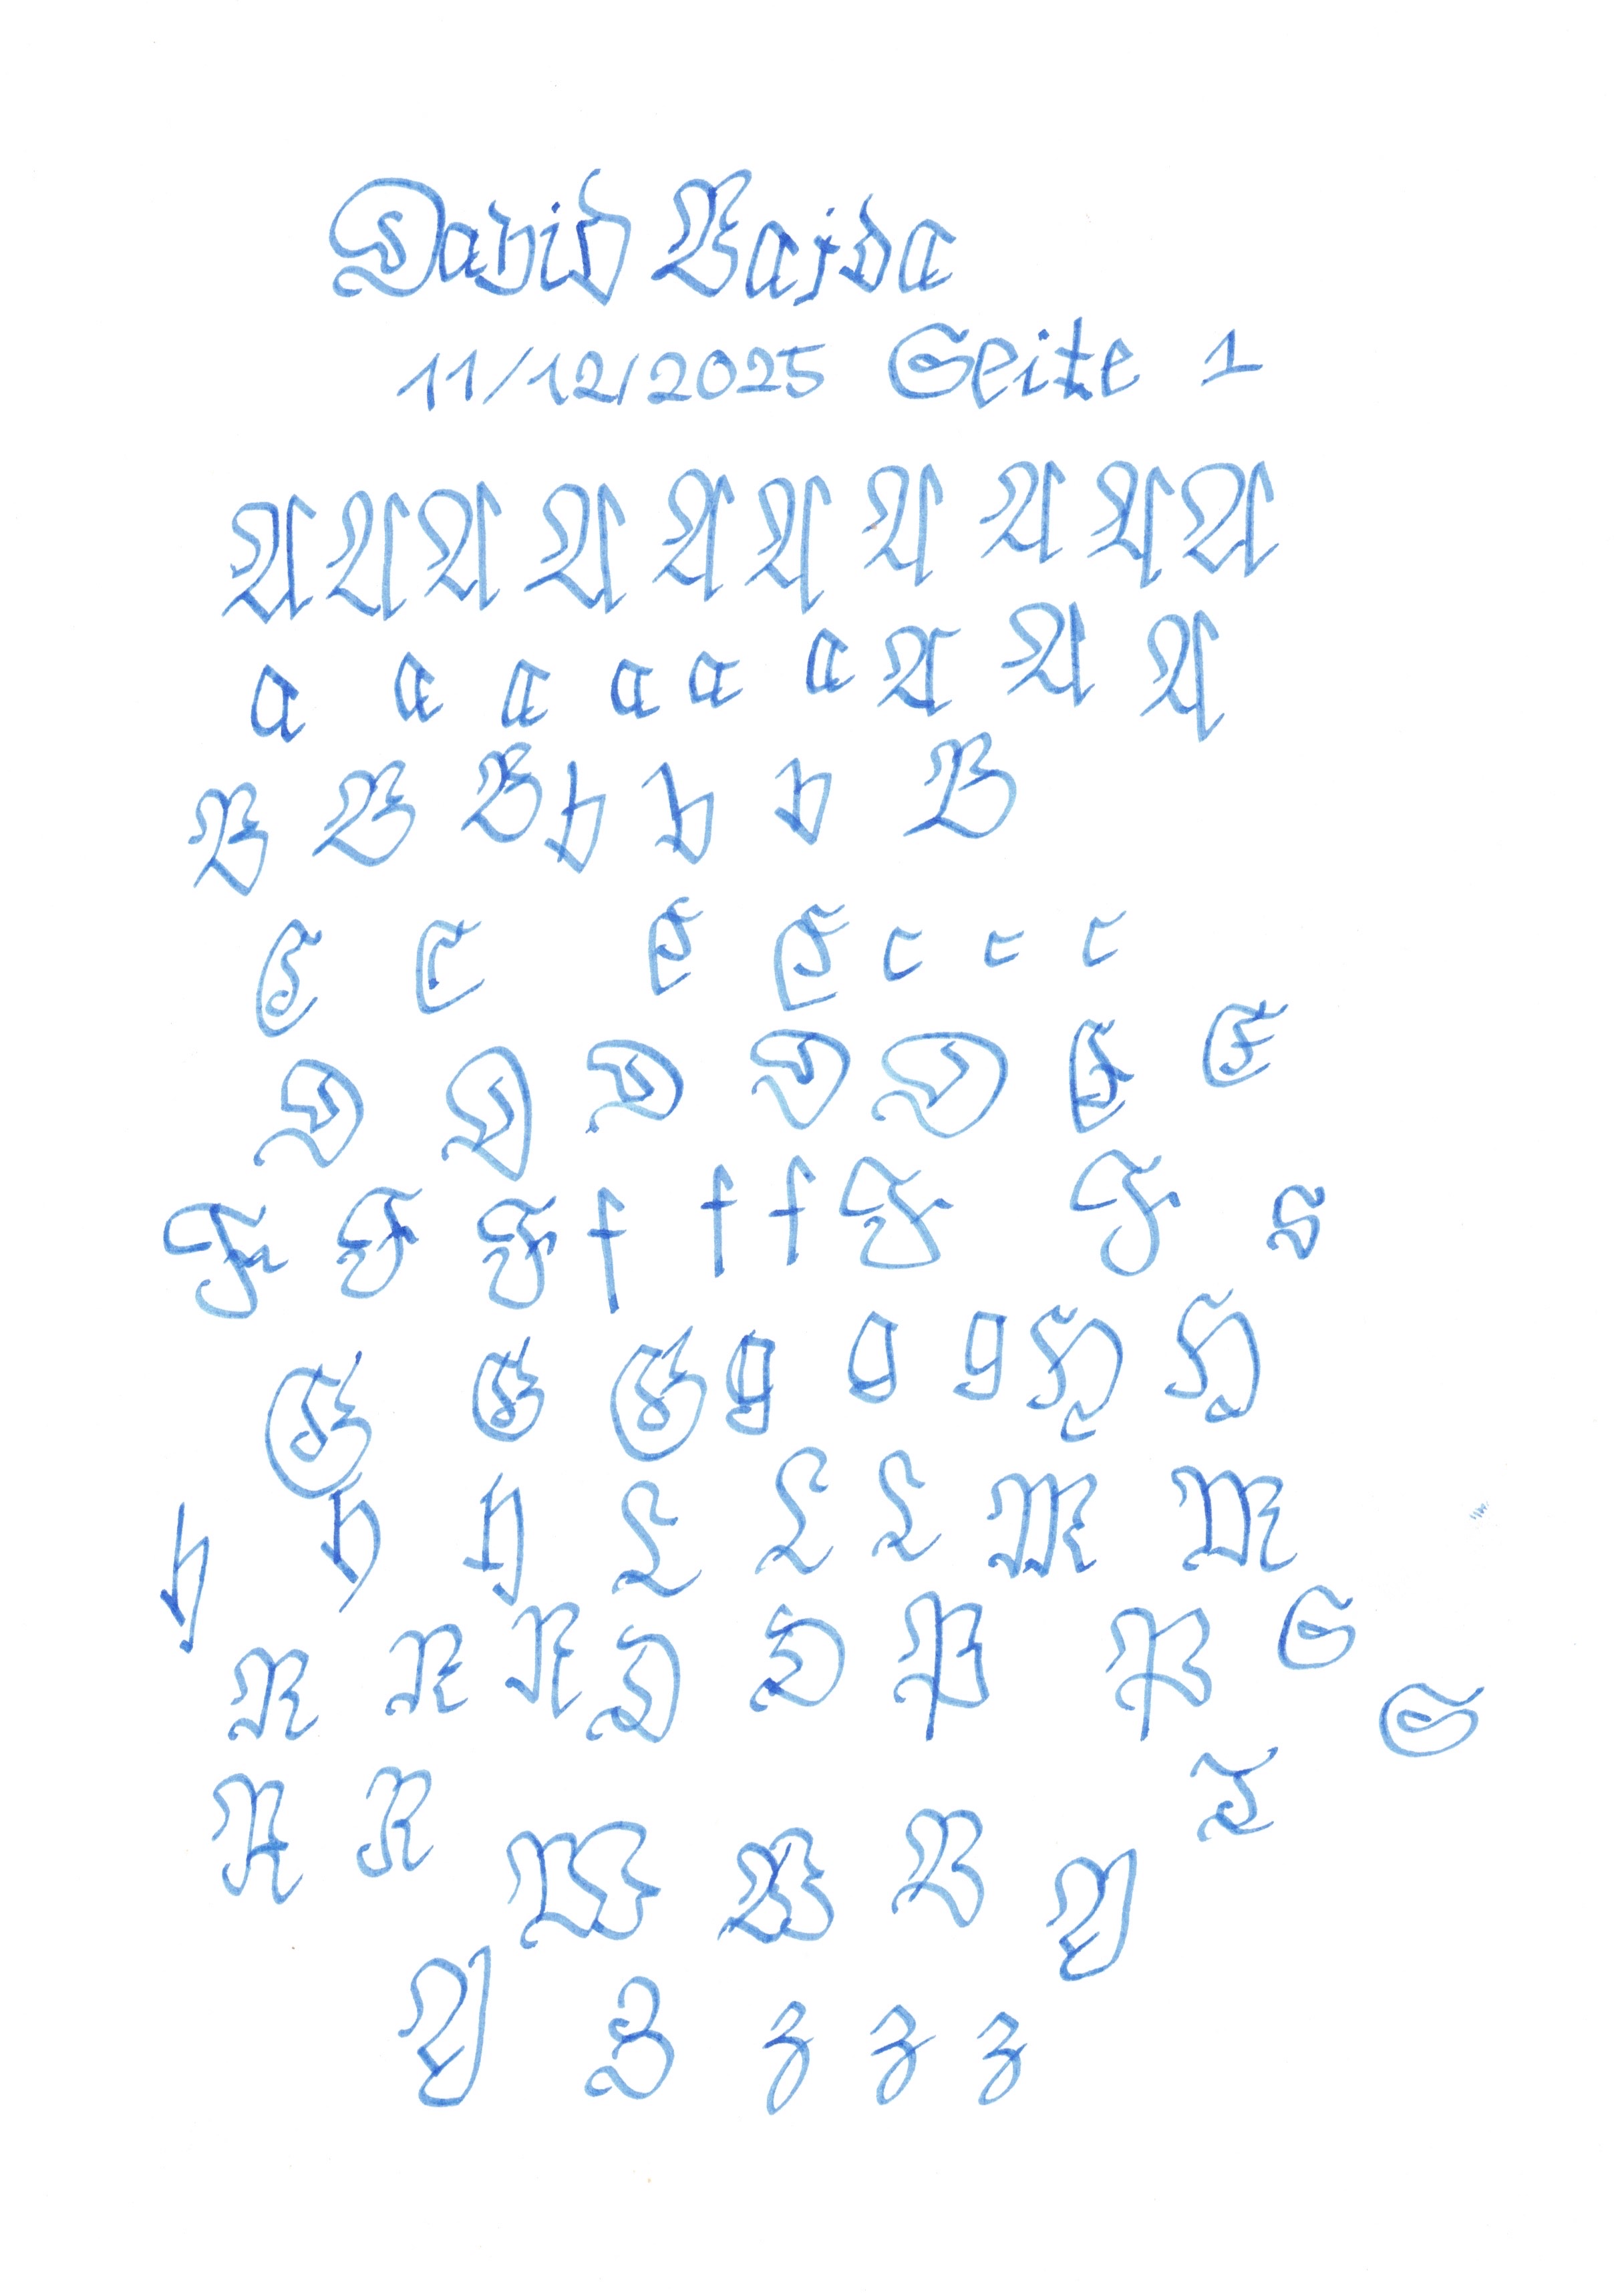 David Vajda
11/12/2025 Seite 1
A A A A A A A A A A
a a a a a a A A A
B B B b b b B
C C C C c c c
D D D D D E E
F F F f f f F F S
G G G g g g H H
h h h L L L M M
N N N O O P P S
S
R R I
W W V Y
Y Z z z z